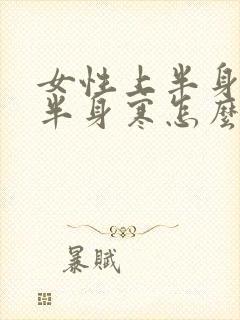 女性上半身
半身寒怎麼
暴賦